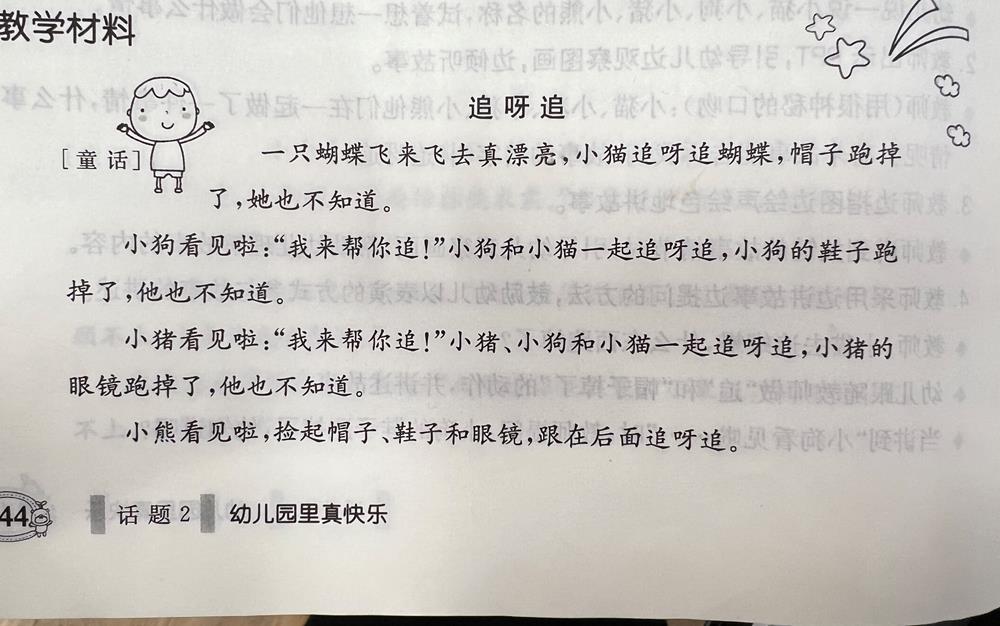 教学材料
追呀追
[童话]
一只蝴蝶飞来飞去真漂亮,小猫追呀追蝴蝶,帽子跑掉
了,她也不知道。
小狗看见啦:“我来帮你追!”小狗和小猫一起追呀追,小狗的鞋子跑
掉了,他也不知道。
小猪看见啦:“我来帮你追!”小猪、小狗和小猫一起追呀追,小猪的
眼镜跑掉了,他也不知道。
小熊看见啦,捡起帽子、鞋子和眼镜,跟在后面追呀追。
44 话题2 幼儿园里真快乐